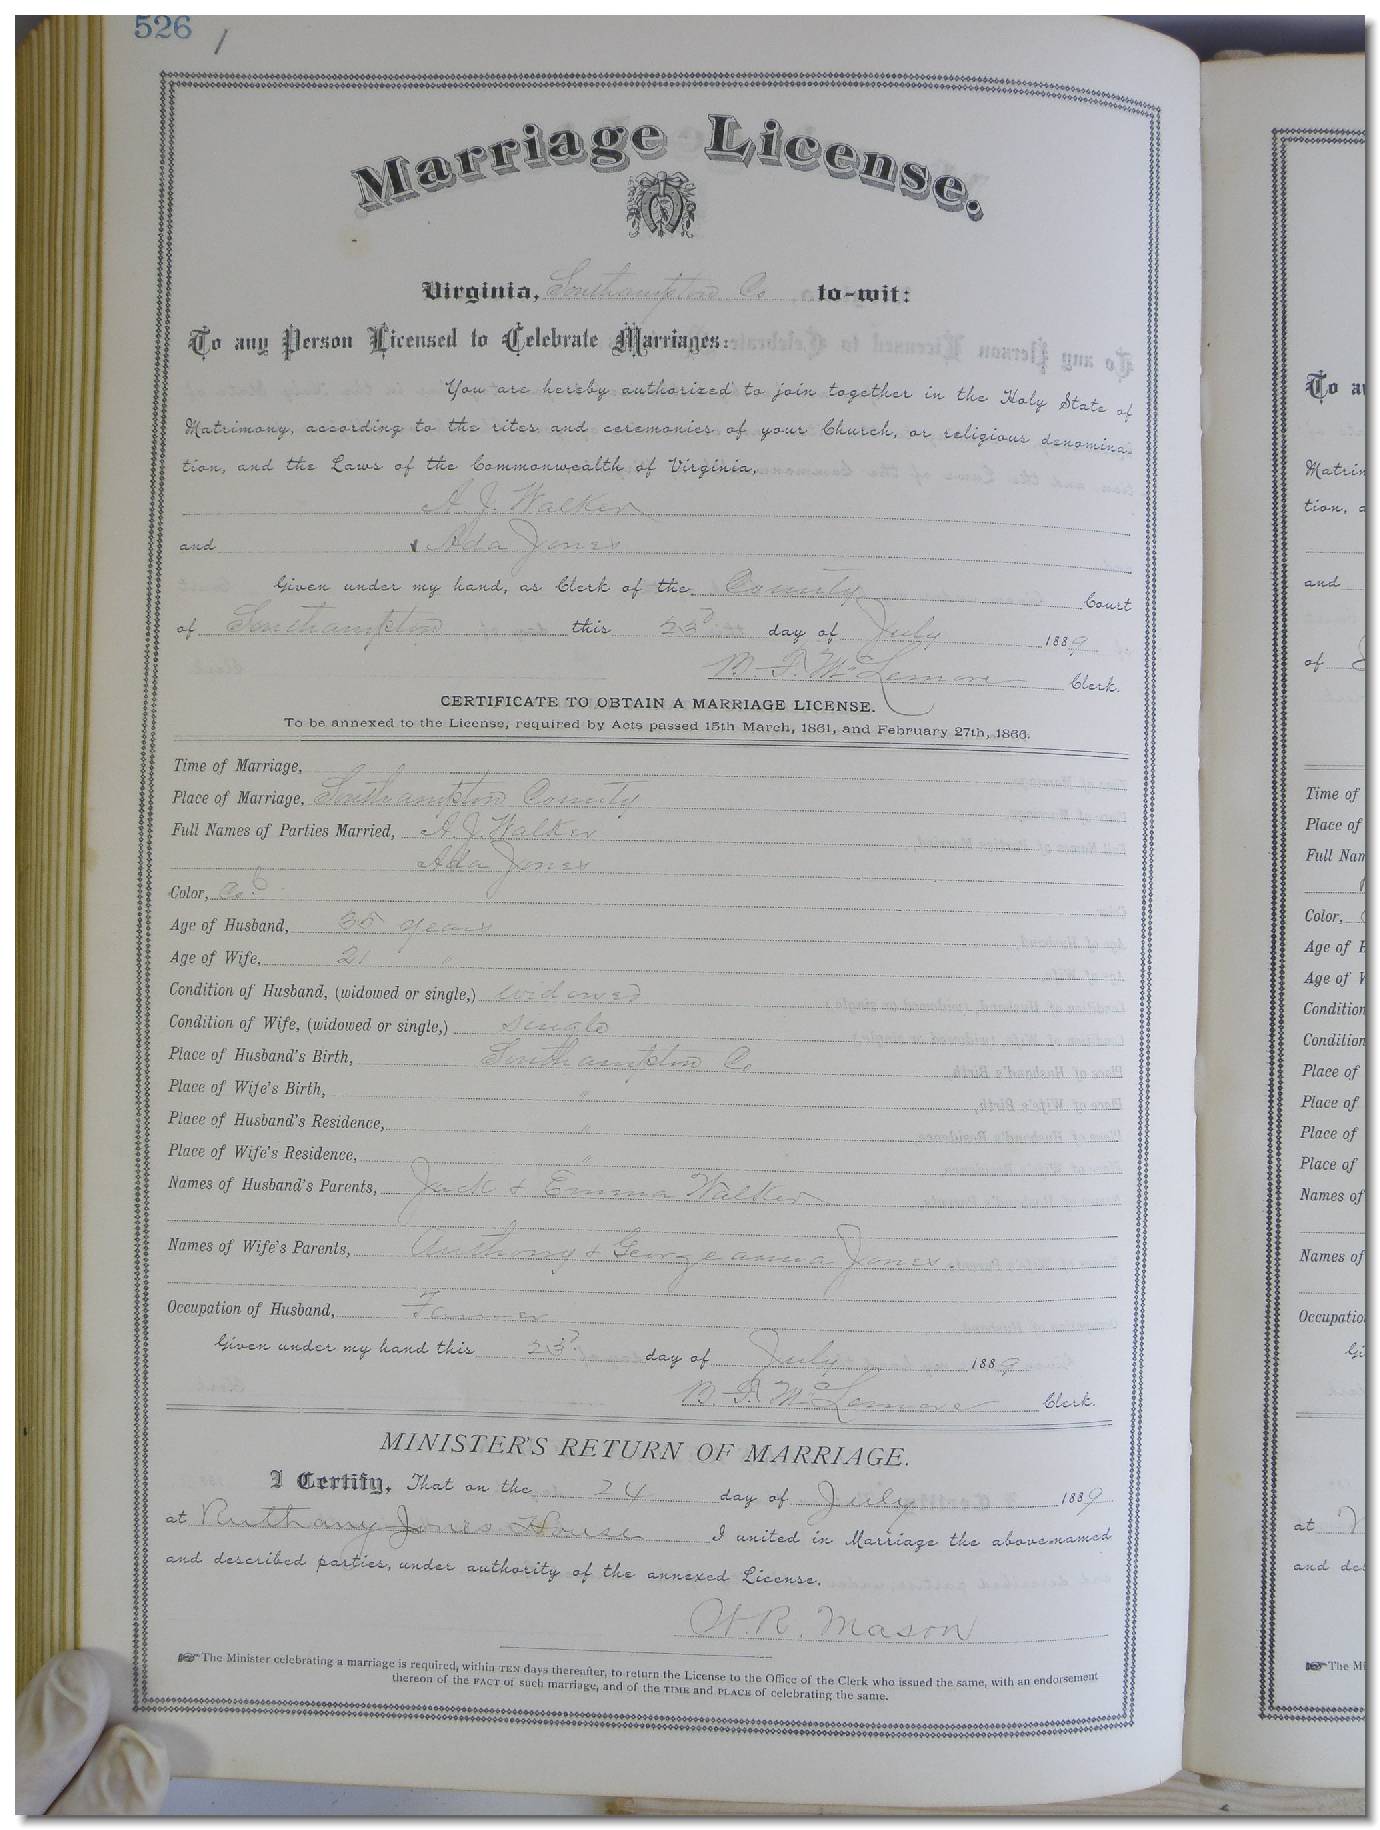 526 /
Marriage License.
Virginia, Southampton Co to-wit:
To any Person Licensed to Celebrate Marriages:
You are hereby authorized to join together in the Holy State of
Matrimony, according to the rites and ceremonies of your Church, or religious denomina-
tion, and the Laws of the Commonwealth of Virginia,
A. J. Walker
and Ada Jones
Given under my hand, as Clerk of the County Court
of Southampton this 23d day of July 1889
B. F. McLemore Clerk.
CERTIFICATE TO OBTAIN A MARRIAGE LICENSE.
To be annexed to the License, required by Acts passed 15th March, 1861, and February 27th, 1866.
Time of Marriage,
Place of Marriage, Southampton County
Full Names of Parties Married, A. J. Walker
Ada Jones
Color, Cod
Age of Husband, 35 years
Age of Wife, 21 "
Condition of Husband, (widowed or single,) widowed
Condition of Wife, (widowed or single,) single
Place of Husband's Birth, Southampton Co
Place of Wife's Birth, "
Place of Husband's Residence, "
Place of Wife's Residence, "
Names of Husband's Parents, Jack & Emma Walker
Names of Wife's Parents, Anthony & Georgeanna Jones
Occupation of Husband, Farmer
Given under my hand this 23d day of July 1889
B. F. McLemore Clerk.
MINISTER'S RETURN OF MARRIAGE.
I Certify, That on the 24 day of July 1889
at Ruthany Jones House I united in Marriage the above-named
and described parties, under authority of the annexed License.
W. R. Mason
☞The Minister celebrating a marriage is required, within TEN days thereafter, to return the License to the Office of the Clerk who issued the same, with an endorsement
thereof of the FACT of such marriage, and of the TIME and PLACE of celebrating the same.
To a
Matrim
tion,
and
of
Time of
Place of
Full Nam
Color,
Age of H
Age of W
Condition
Condition
Place of
Place of
Place of
Place of
Names of
Names of
Occupatio
Gi
at
and des
☞The Mi